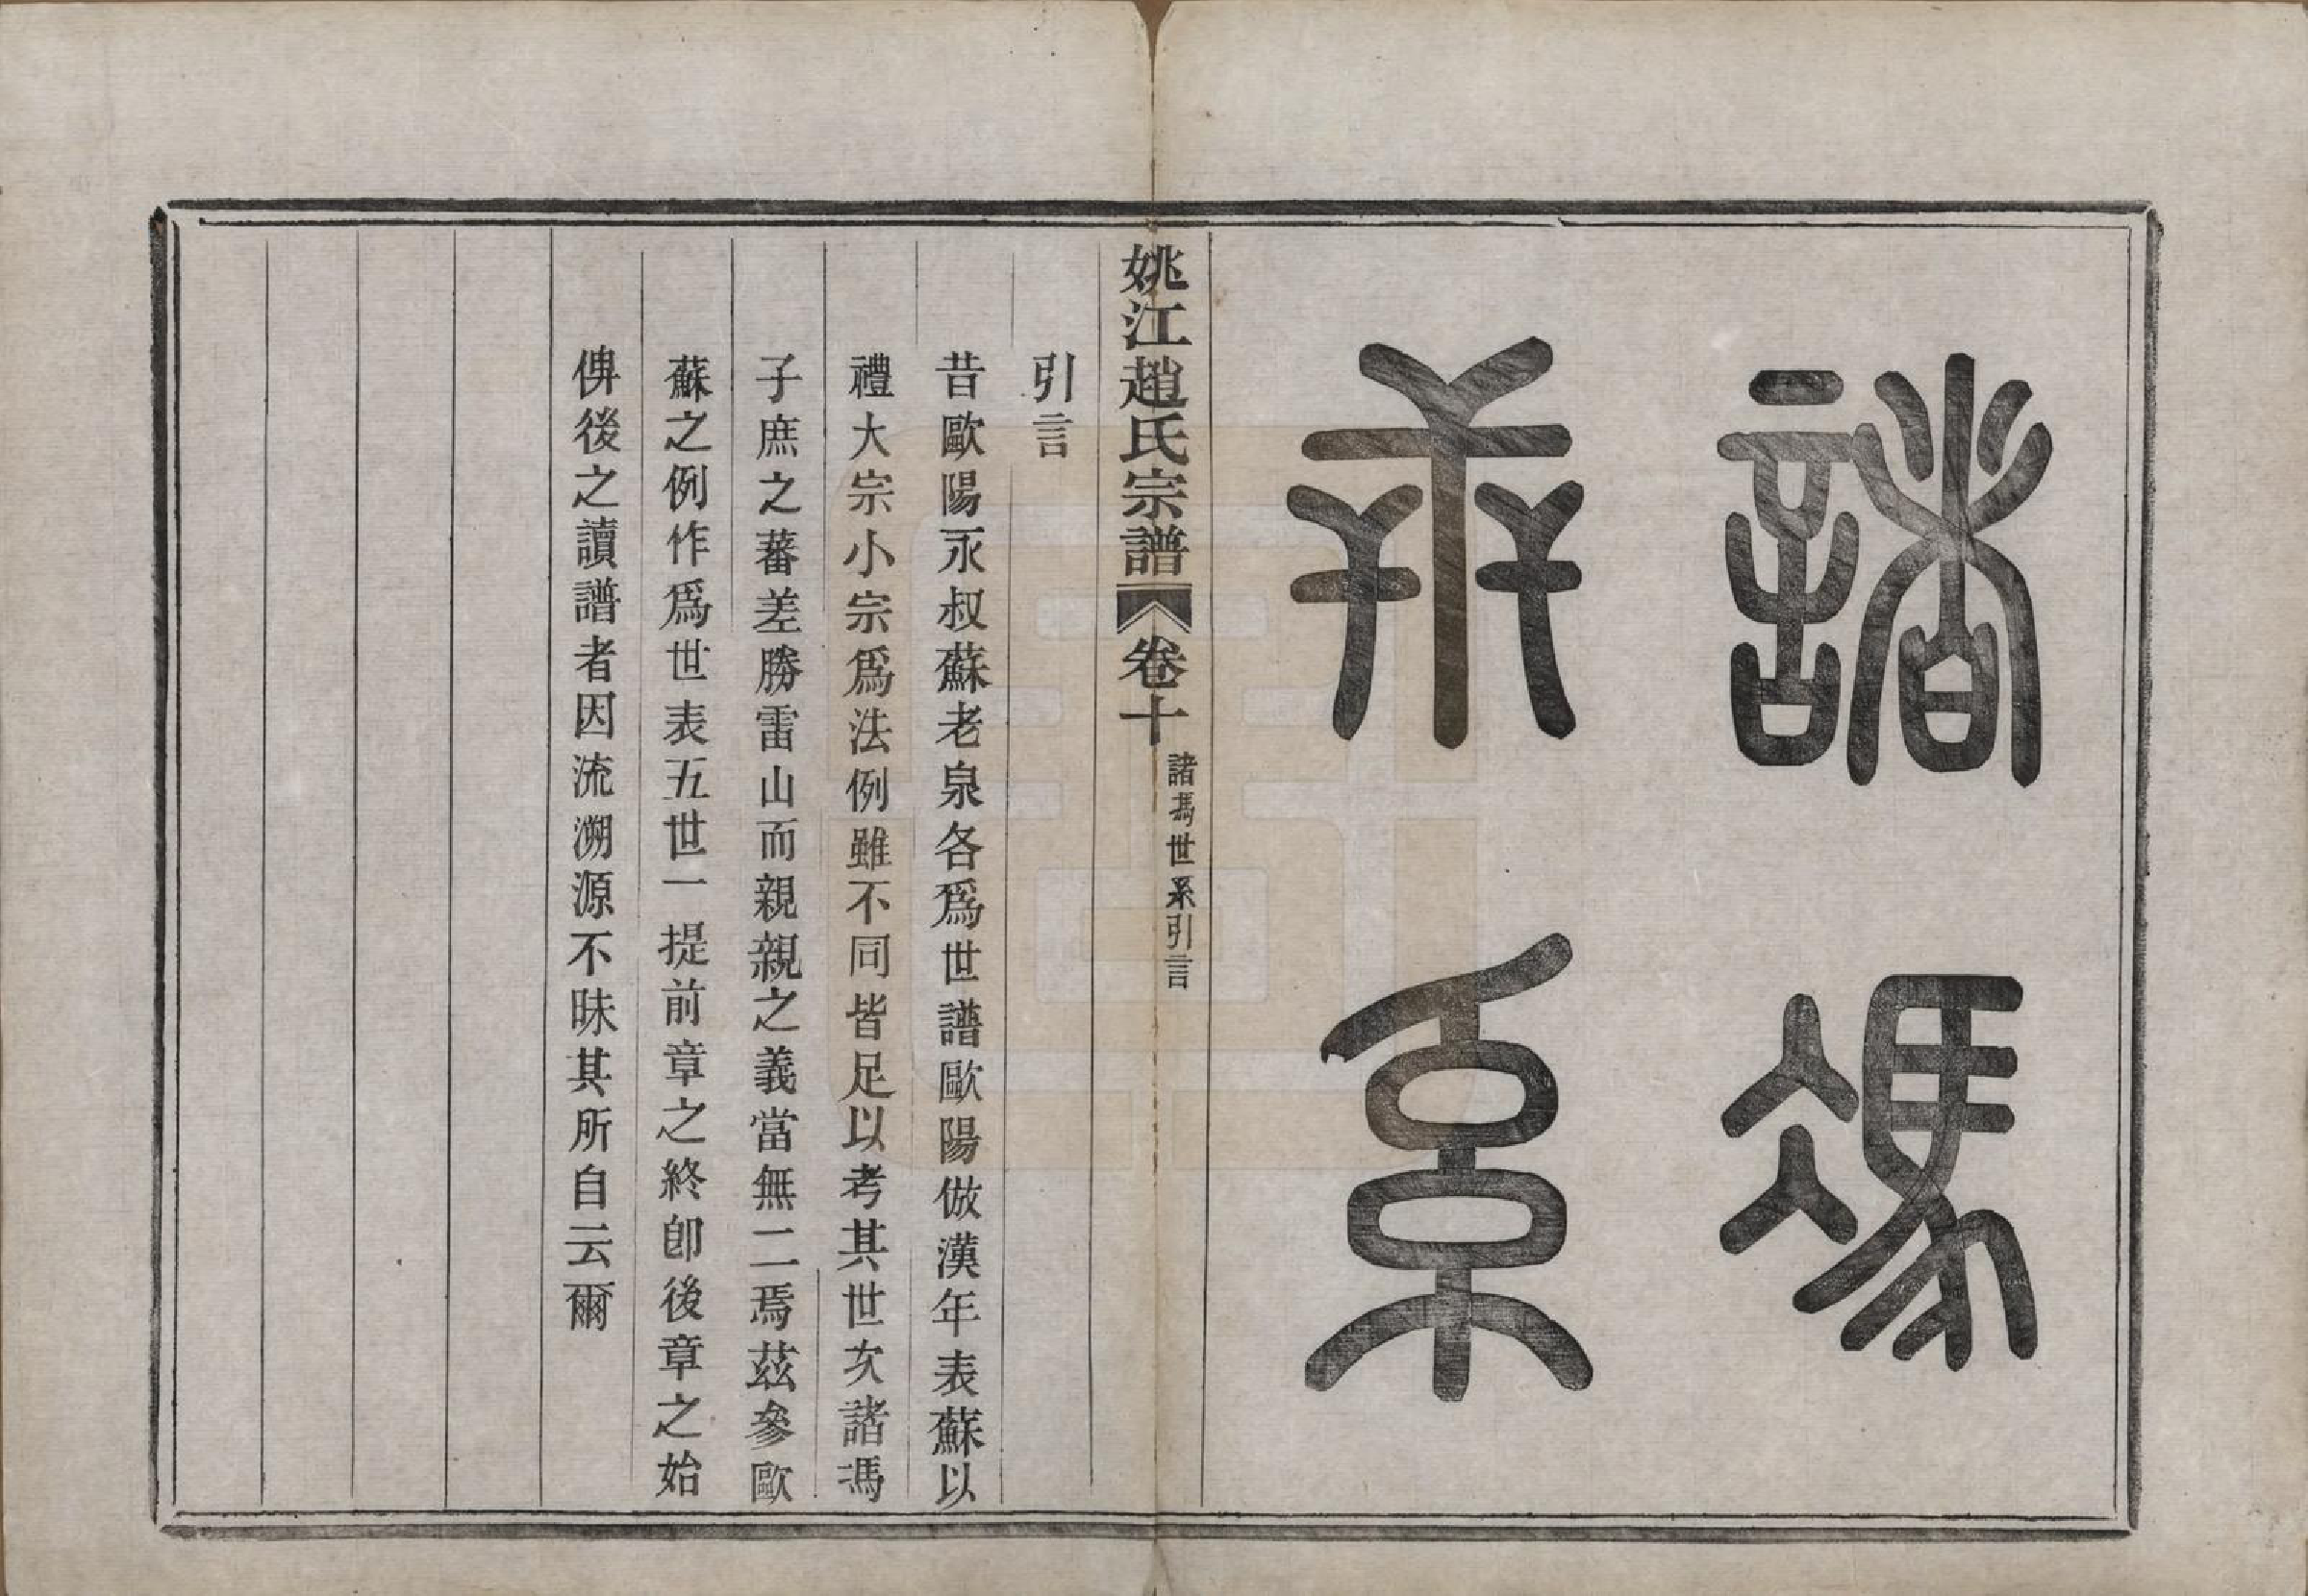 諸馮
世系
姚江趙氏宗譜
卷十
諸馮世系引言
引言
昔歐陽永叔蘇老泉各爲世譜歐陽倣漢年表蘇以
禮大宗小宗爲法例雖不同皆足以考其世次諸馮
子庶之蕃差勝雷山而親親之義當無二焉茲參歐
蘇之例作爲世表五世一提前章之終卽後章之始
俾後之讀譜者因流溯源不昧其所自云爾